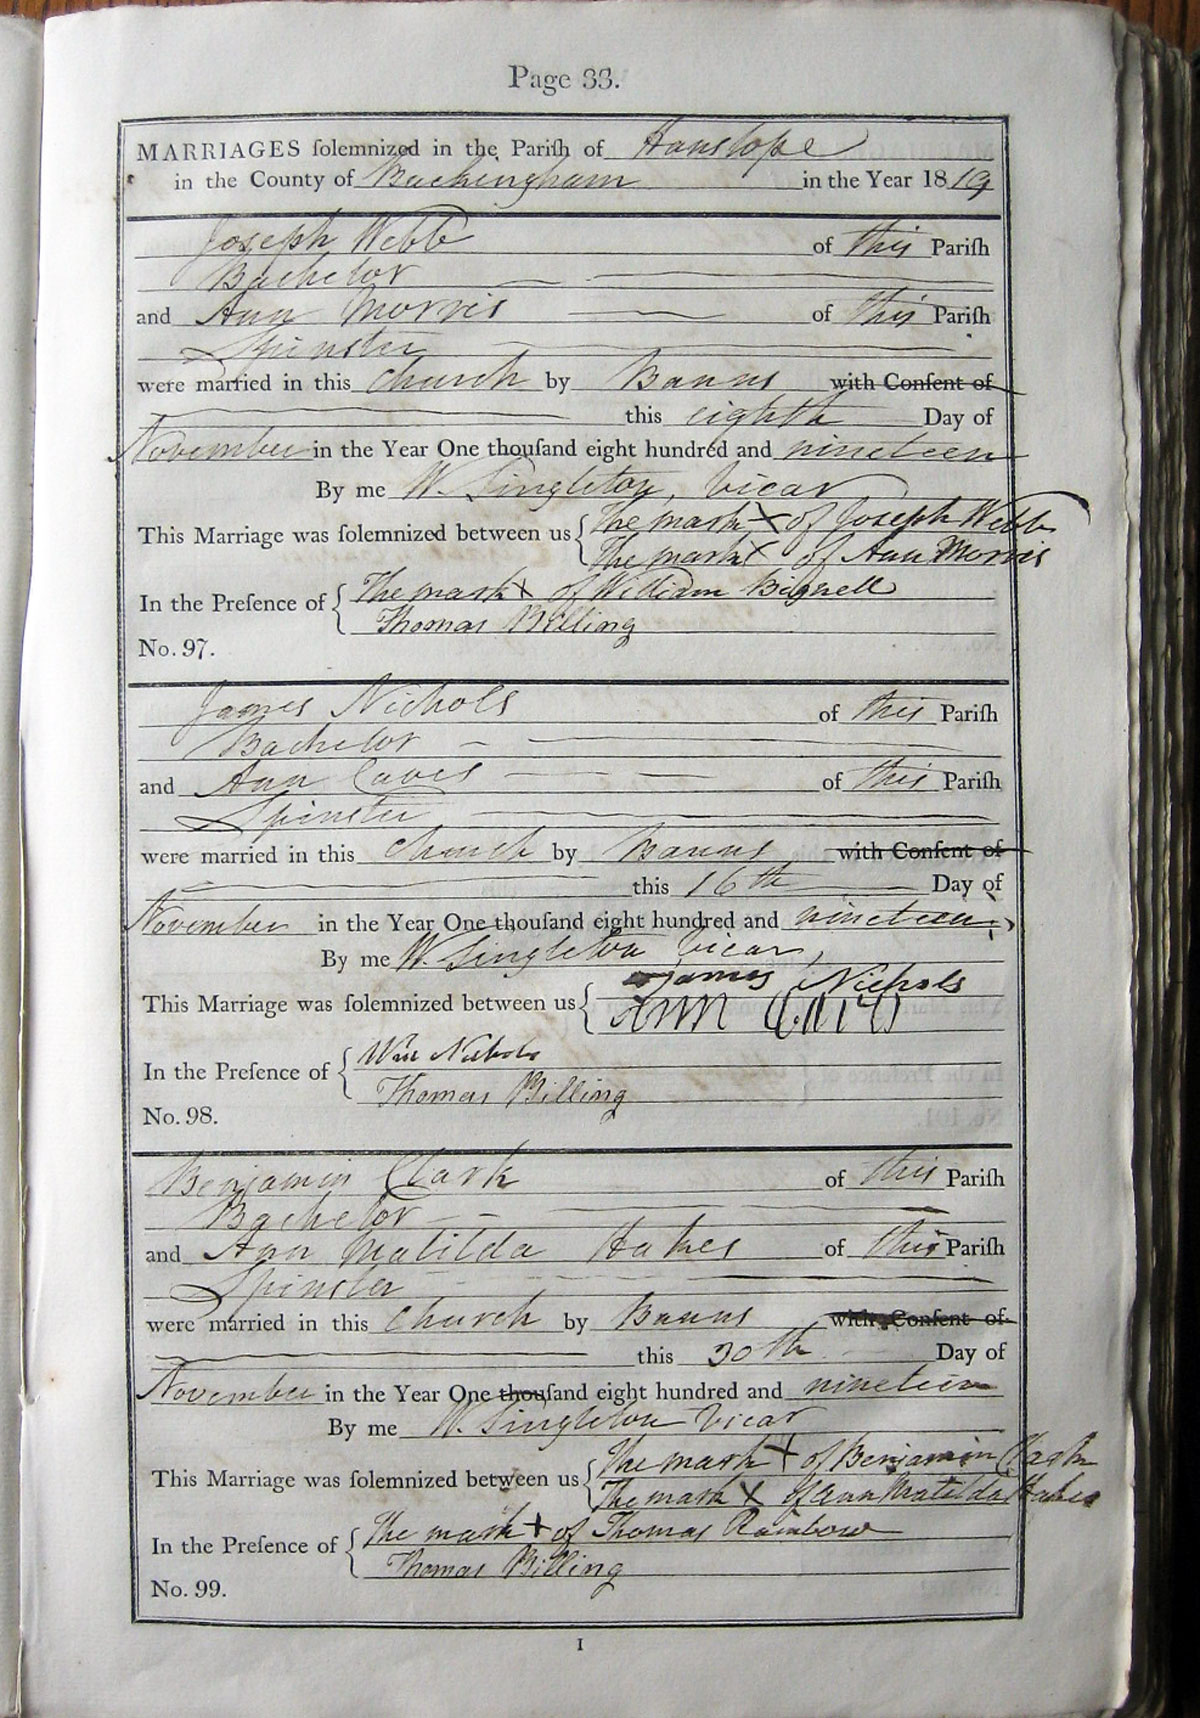 Page 33.
MARRIAGES ſolemnized in the Pariſh of Hanslope
in the County of Buckingham in the Year 1819
Joseph Webb of this Pariſh
Bachelor
and Ann Morris of this Pariſh
Spinster
were married in this Church by Banns with Conſent of
this eighth Day of
November in the Year One thouſand eight hundred and nineteen
By me W. Singleton, Vicar
This Marriage was ſolemnized between us { The mark X of Joseph Webb
The mark X of Ann Morris
In the Preſence of { The mark X of William Bignell
Thomas Billing
No. 97.
James Nichols of this Pariſh
Bachelor
and Ann Caves of this Pariſh
Spinster
were married in this Church by Banns with Conſent of
this 16th Day of
November in the Year One thouſand eight hundred and nineteen
By me W. Singleton Vicar,
This Marriage was ſolemnized between us { James Nichols
Ann
In the Preſence of { Will Nichols
Thomas Billing
No. 98.
Benjamin Clark of this Pariſh
Bachelor
and Ann Matilda Hakes of this Pariſh
Spinster
were married in this Church by Banns with Conſent of
this 30th Day of
November in the Year One thouſand eight hundred and nineteen
By me W. Singleton Vicar
This Marriage was ſolemnized between us { The mark X of Benjamin Clark
The mark X of Ann Matilda Hakes
In the Preſence of { The mark X of Thomas Rainbow
Thomas Billing
No. 99.
I